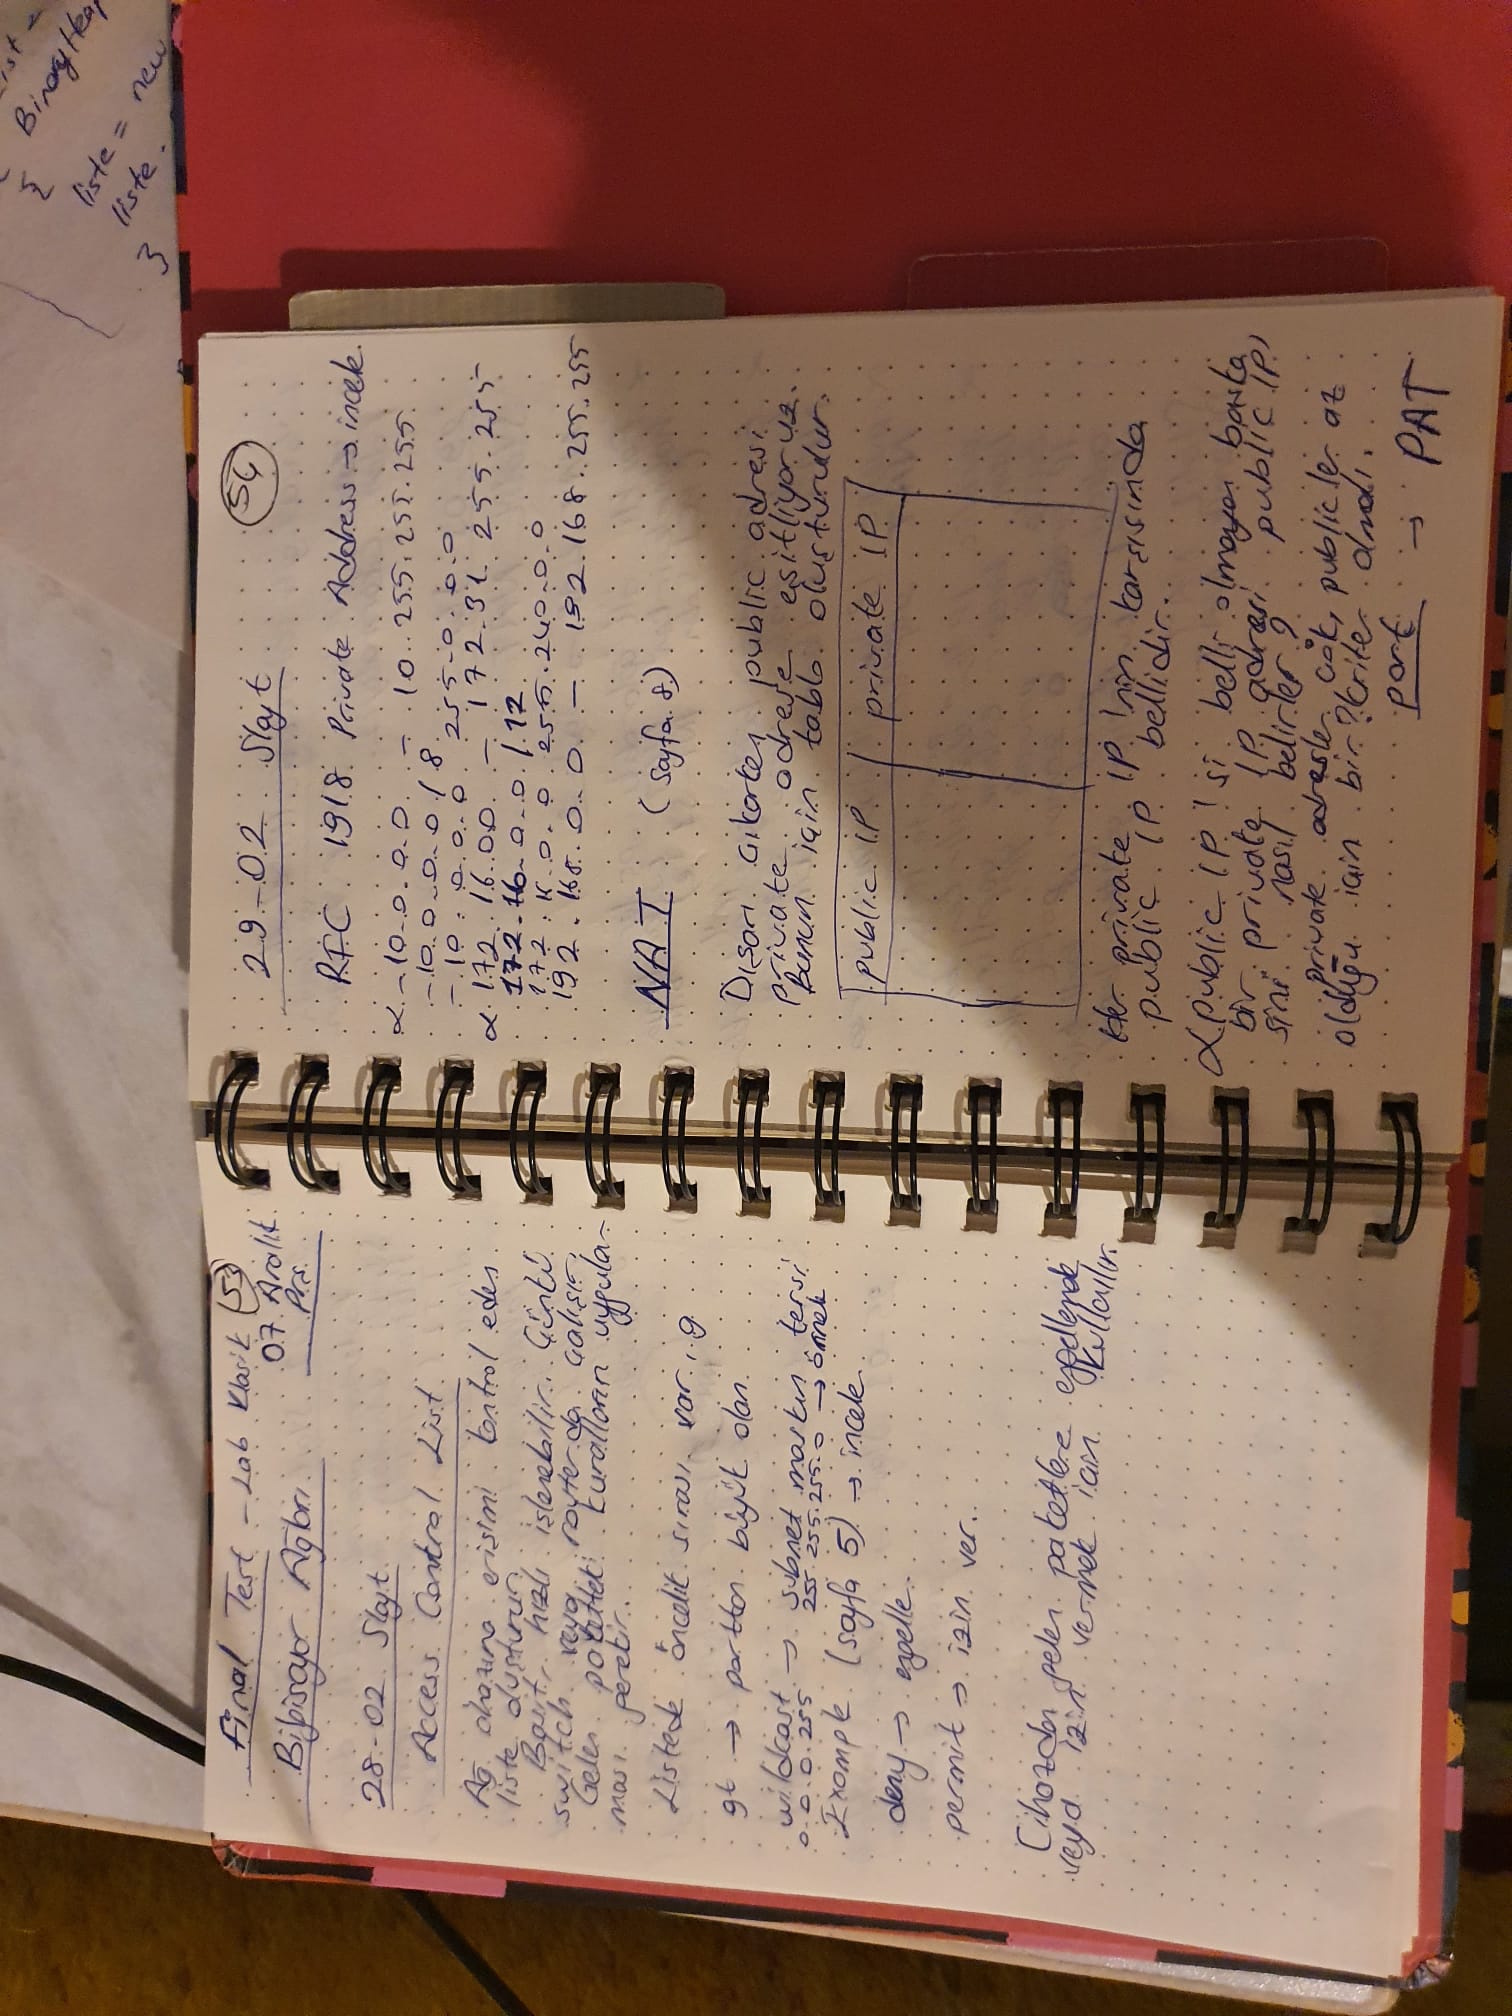 Final Test - Lab Klasik 53
07 Aralık
Bilgisayar Ağları Prş.
28-02 Slayt
Access Control List
Ağ cihazına erişimi kontrol eden
liste oluşturur.
Basit, hızlı işlenebilir. Çünkü
switch veya router da çalışır.
Gelen paketteki kuralların uygula-
ması gerekir.
Listede öncelik sırası var. g
gt → porttan büyük olan
wildcast → subnet maskın tersi
0.0.0.255 255.255.255.0 → örnek
Example (sayfa 5) → incele
deny → engelle
permit → izin ver.
Cihazdan gelen paketlere engellemek
veya izin vermek için kullanılır.
29-02 Slayt 54
RFC 1918 Private Address → incele.
α -10.0.0.0 - 10.255.255.255
-10.0.0.0/8
-10.0.0.0 255.0.0.0
α 172.16.0.0 - 172.31.255.255
172.16.0.0/12
172.16.0.0 255.240.0.0
192.168.0.0 - 192.168.255.255
NAT (sayfa 8)
Dışarı çıkarken public adresi
private adrese eşitliyoruz.
Bunun için tablo oluşturulur.
public IP private IP
Her private IP'nin karşısında
public IP bellidir.
α public IP'si belli olmayan başka
bir private IP adresi public IP'
sini nasıl belirler?
private adresler çok, publicler az
olduğu için bir ? kriter olmalı.
port → PAT
{ BinaryHeap
liste = new
liste.
}